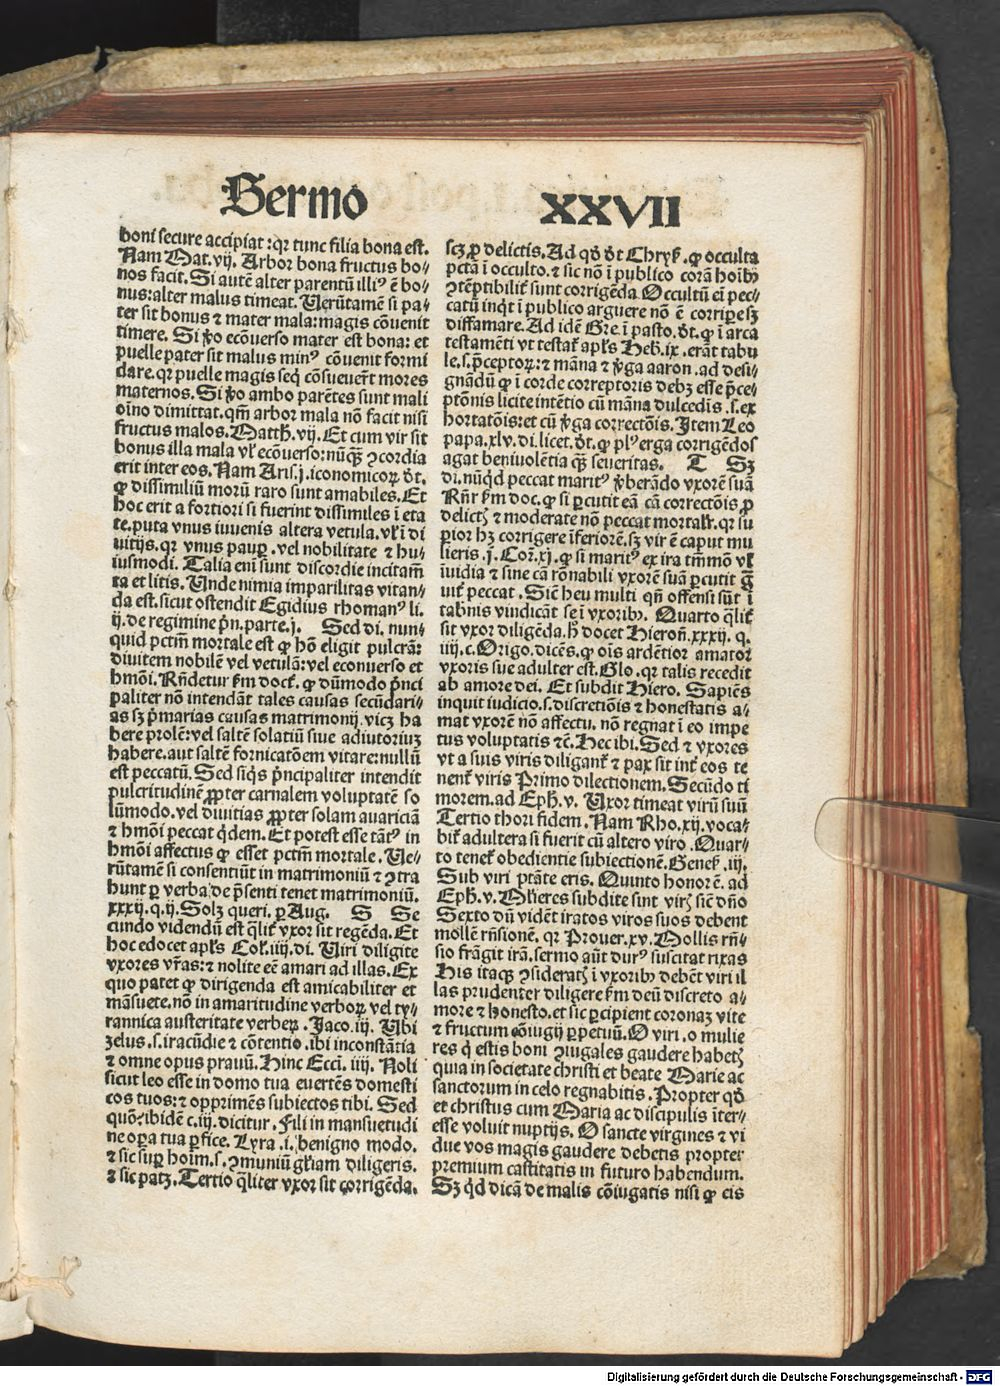 Sermo XXVII
boni secure accipiat: qꝛ tunc filia bona est.
Nam Mat. vij. Arbor bona fructus bo⸗
nos facit. Si autē alter parentū illiꝰ ē bo⸗
nus: alter malus timeat. Uerūtamē si pa⸗
ter sit bonus ⁊ mater mala: magis cōuenit
timere. Si ꝟo ecōuerso mater est bona: et
puelle pater sit malus minꝰ cōuenit formi
dare. qꝛ puelle magis seq̄ cōsueuerūt mores
maternos. Si ꝟo ambo parētes sunt mali
oīno dimittat. qm̄ arbor mala nō facit nisi
fructus malos. Matth. vij. Et cum vir sit
bonus illa mala vl' ecōuerso: nūqꝫ ↄcordia
erit inter eos. Nam Aris. j. iconomicoꝝ dt.
ꝙ dissimiliū morū raro sunt amabiles. Et
hoc erit a fortiori si fuerint dissimiles ī eta
te. puta vnus iuuenis altera vetula. vl' ī di
uitijs. qꝛ vnus paup. vel nobilitate ⁊ hu⸗
iusmodi. Talia eni sunt discordie incitam̄
ta et litis. Unde nimia imparilitas vitan⸗
da est. sicut ostendit Egidius rhomanꝰ li.
ij. de regimine pn. parte. j. Sed di. nun⸗
quid pctm̄ mortale est ꝙ hō eligit pulcrā:
diuitem nobilē vel vetulā: vel econuerso et
hmōi. Rn̄detur km doct. ꝙ dūmodo pnci
paliter nō intendāt tales causas secūdari⸗
as sꝫ pmarias causas matrimonij. vicꝫ ha
bere prolē: vel saltē solatiū siue adiutoriuꝫ
habere. aut saltē fornicatōem vitare: nullū
est peccatū. Sed siqs pncipaliter intendit
pulcritudinē ꝓpter carnalem voluptatē so
lūmodo. vel diuitias ꝓpter solam auariciā
⁊ hmōi peccat qdem. Et potest esse tātꝰ in
hmōi affectus ꝙ esset pctm̄ mortale. Ue⸗
rūtamē si consentiūt in matrimoniū ⁊ ↄtra
hunt ꝑ verba de pn̄senti tenet matrimoniū.
xxxij. q. ij. Solꝫ queri. ꝑ Aug. S Se
cundo videndū est qlit vxor sit regēda. Et
hoc edocet apls Col. iiij. di. Uiri diligite
vxores vr̄as: ⁊ nolite eē amari ad illas. Ex
quo patet ꝙ dirigenda est amicabiliter et
māsuete. nō in amaritudine verboꝝ vel ty⸗
rannica austeritate verbeꝝ. Jaco. iij. Ubi
zelus. s. iracūdie ⁊ cōtentio. ibi inconstātia
⁊ omne opus prauū. Hinc Ecci. iiij. Noli
sicut leo esse in domo tua euertēs domesti
cos tuos: ⁊ opprimēs subiectos tibi. Sed
quō: ibidē c. iij. dicitur. Fili in mansuetudi
ne oꝑa tua ꝑfice. Lyra. i. benigno modo.
⁊ sic suꝑ hoīm. s. ↄmuniū gl'iam diligeris.
⁊ sic patꝫ. Tertio qliter vxor sit corrigēda.
scꝫ ꝓ delictis. Ad qd dt Chryš. ꝙ occulta
pctā ī occulto. ⁊ sic nō ī publico corā hoībꝰ
ↄtēptibilit sunt corrigēda. Occultū ei pec⸗
catū inqt ī publico arguere nō ē corriꝑe sꝫ
diffamare. Ad idē Gre. ī pasto. dt. ꝙ ī arca
testamēti vt testat apls Heb. ix. erāt tabu
le. s. pceptoꝝ: ⁊ māna ⁊ ꝟga aaron. ad desi⸗
gnādū ꝙ ī corde correptoris debꝫ esse pce⸗
ptōnis licite intētio cū māna dulcedīs. s. ex
hortatōis: et cū ꝟga correctōis. Item Leo
papa. xlv. di. licet. dt. ꝙ plꝰ erga corrigēdos
agat beniuolētia qꝫ seueritas. T Sꝫ
di. nūqd peccat maritꝰ ꝟberādo vxorē suā
Rn̄r km doc. ꝙ si ꝑcutit eā cā correctōis ꝓ
delictꝫ ⁊ moderate nō peccat mortalr. qꝛ su
ꝑior hꝫ corrigere īferiorē. sꝫ vir ē caput mu
lieris. j. Cor. xj. ꝙ si maritꝰ ex ira tm̄mō vl'
īuidia ⁊ sine cā rōnabili vxorē suā ꝑcutit gͣ
uit peccat. Sic heu multi qn̄ offensi sūt ī
tabnis vindicāt se ī vxoribꝰ. Quarto qlit
sit vxor diligēda. hͦ docet Hieron̄. xxxij. q.
iiij. c. Origo. dicēs. ꝙ ois ardētior amator
vxoris sue adulter est. Glo. qꝛ talis recedit
ab amore dei. Et subdit Hiero. Sapiēs
inquit iudicio. s. discretiōis ⁊ honestatis a⸗
mat vxorē nō affectu. nō regnat ī eo impe
tus voluptatis ⁊c̄. Hec ibi. Sed ⁊ vxores
vt a suis viris diligant ⁊ pax sit int eos te
nent viris Primo dilectionem. Secūdo ti
morem. ad Eph. v. Uxor timeat virū suū
Tertio thori fidem. Nam Rho. xij. voca⸗
bit adultera si fuerit cū altero viro. Quar⸗
to tenet obedientie subiectionē. Genes. iij.
Sub viri ptāte eris. Quinto honorē. ad
Eph. v. Mlieres subdite sint virꝫ sic dn̄o
Sexto dū vidēt iratos viros suos debent
mollē rn̄sionē. qꝛ Prouer. xv. Mollis rn̄⸗
sio frāgit irā. sermo aūt durꝰ suscitat rixas
His itaqꝫ ↄsideratꝫ ī vxoribꝰ debēt viri il
las prudenter diligere km deū discreto a⸗
more ⁊ honesto. et sic ꝑcipient coronaꝫ vite
⁊ fructum cōiugij ꝑpetuū. O viri. o mulie
res q estis boni ↄiugales gaudere habetꝫ
quia in societate christi et beate Marie ac
sanctorum in celo regnabitis. Propter qd
et christus cum Maria ac discipulis īter⸗
esse voluit nuptijs. O sancte virgines ⁊ vi
due vos magis gaudere debetis propter
premium castitatis in futuro habendum.
Sꝫ qd dicā de malis cōiugatis nisi ꝙ eis
Digitalisierung gefördert durch die Deutsche Forschungsgemeinschaft - DFG